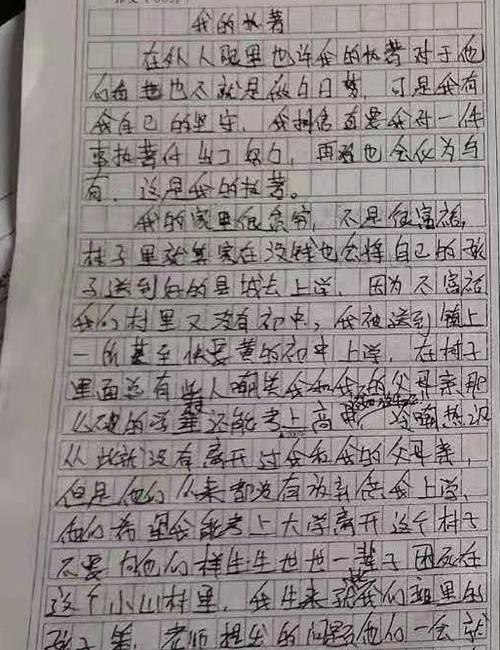 我的执着
在外人眼里也许我的执着对于他
们而也不就是做白日梦，可是我有
我自己的坚守，我相信只要我对一件
事执着付出了努力，再难也会化为乌
有，这是我的执着。
我的家里很贫穷，不是很富裕，
村子里就算实在没钱也会将自己的孩
子送到好的县城去上学，因为不富裕
我们村里又没有初中，我被送到镇上
一所甚至快要黄的初中上学，在村子
里面总有些人嘲笑我和我的父母亲那
么破的学还能考上高中，冷嘲热讽
从此就没有离开过我和我的父母亲，
但是他们从来都没有放弃供我上学，
他们希望我能考上大学离开这个村子
不要向他们样生生世世一辈子困死在
这个小山村里，我生来就我们班里的
孩子笨，老师提出的问题他们一会就